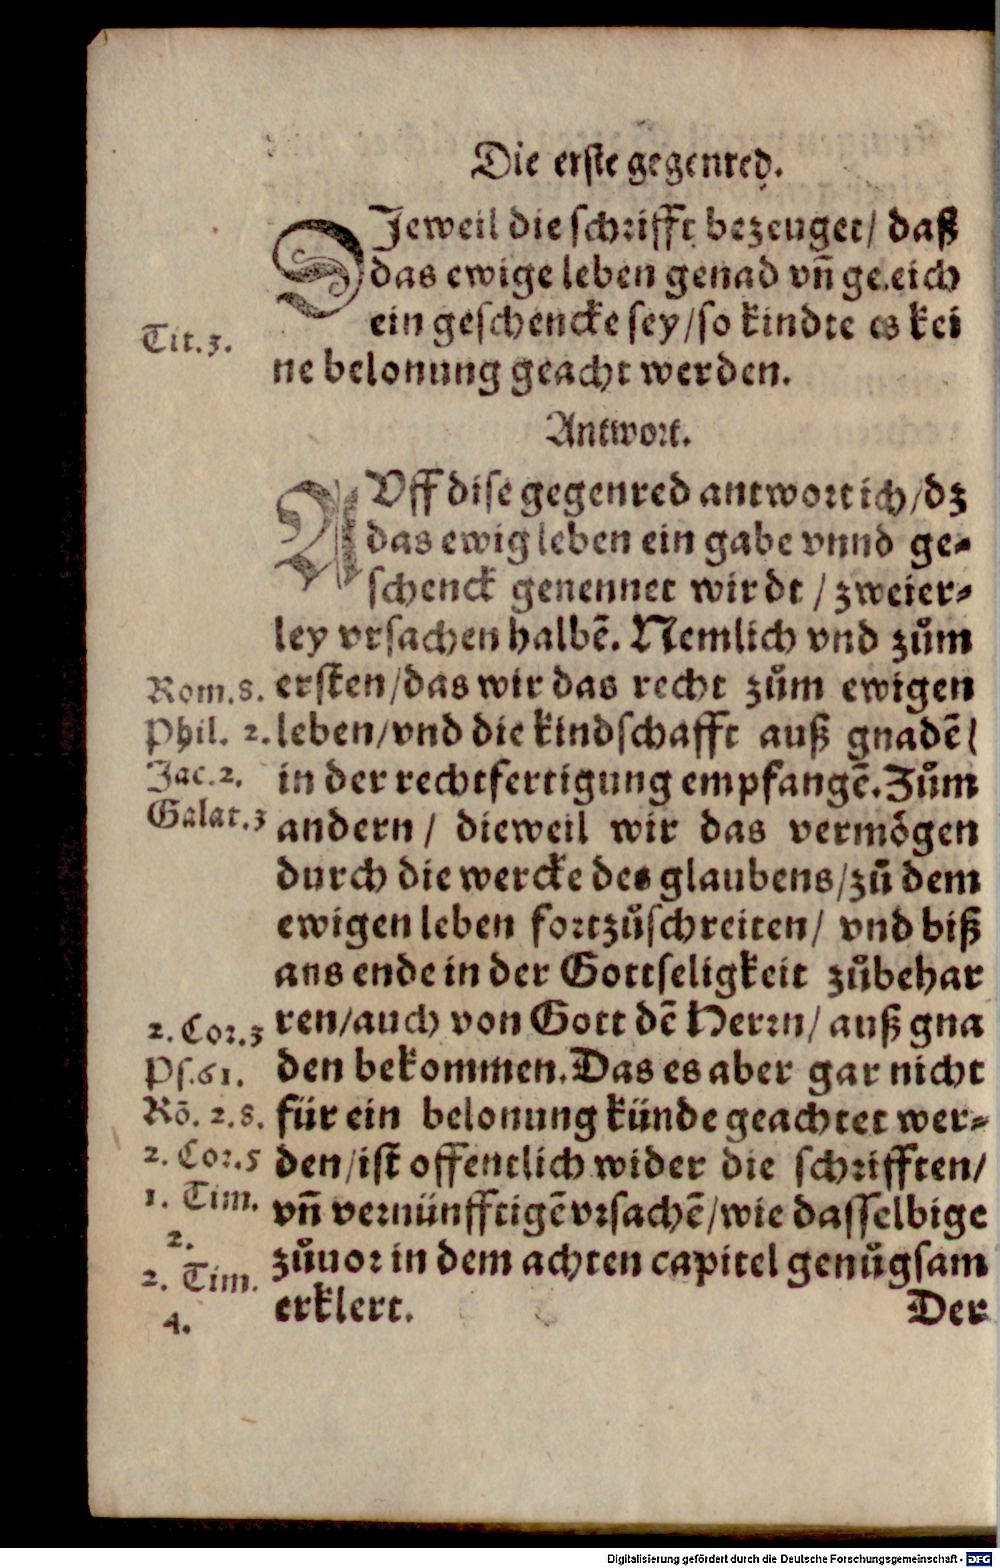 Die erste gegenred.
DJeweil die schrifft bezeuget/ daß
das ewige leben genad vñ gleich
ein geschencke sey/so kindte es kei
Tit.3.
ne belonung geacht werden.
Antwort.
AVff dise gegenred antwort ich/dz
das ewig leben ein gabe vnnd ge-
schenck genennet wirdt / zweier-
ley vrsachen halbẽ. Nemlich vnd zům
Rom.8. ersten/das wir das recht zům ewigen
Phil. 2. leben/vnd die kindschafft auß gnadẽ/
Jac.2. in der rechtfertigung empfangẽ. Zům
Galat.3 andern / dieweil wir das vermögen
durch die wercke des glaubens/zů dem
ewigen leben fortzůschreiten/ vnd biß
ans ende in der Gottseligkeit zůbehar
2. Cor.3 ren/auch von Gott dẽ Herrn/ auß gna
Ps.61. den bekommen. Das es aber gar nicht
Rõ. 2.8. für ein belonung künde geachtet wer-
2. Cor.5 den/ist offentlich wider die schrifften/
1. Tim. vñ vernünfftigẽ vrsachẽ/wie dasselbige
2.
zůuor in dem achten capitel genůgsam
2. Tim.
erklert. Der
4.
Digitalisierung gefördert durch die Deutsche Forschungsgemeinschaft - DFG